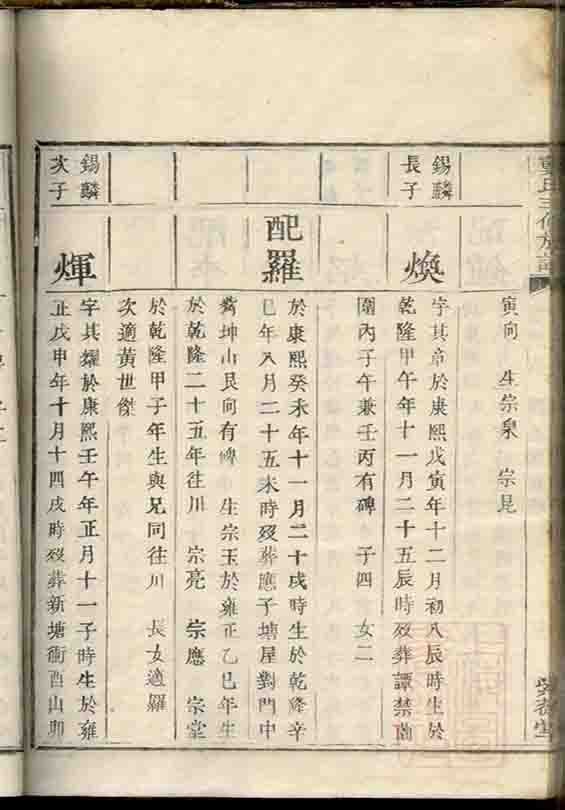 寅向 生宗泉 宗昆
錫麟
長子
煥
字其章於康熙戊寅年十二月初八辰時生於
乾隆甲午年十一月二十五辰時歿葬譚禁
園內子午兼壬丙有碑 子四 女二
配羅
於康熙癸未年十一月二十戌時生於乾隆辛
巳年八月二十五未時歿葬應子塘屋對門中
坤山艮向有碑 生宗玉於雍正乙巳年生
於乾隆二十五年往川 宗亮 宗應 宗堂
於乾隆甲子年生與兄同往川 長女適羅
次適黃世傑
錫麟
次子
煇
字其燿於康熙壬午年正月十一子時生於雍
正戊申年十月十四戌時歿葬新塘衝酉山卯